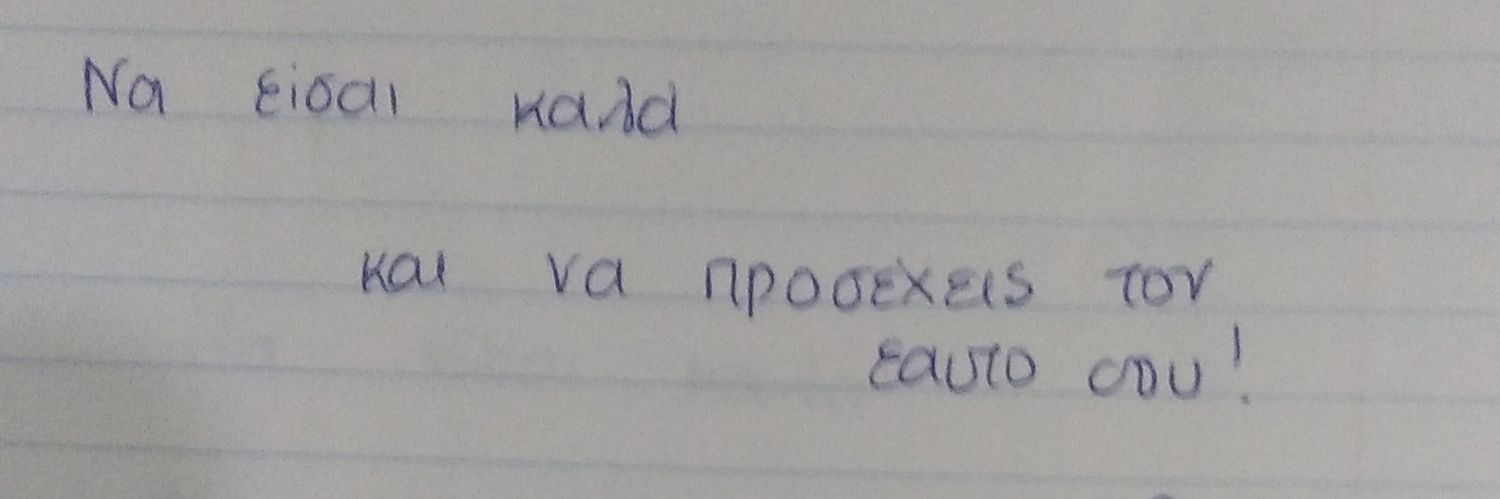 Να εισαι καλα
και να προσεχεις τον
εαυτο σου!